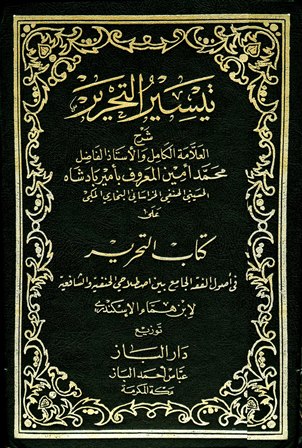 تيسير التحرير
شرح
العلامة الكامل والأستاذ الفاضل
محمد أمين المعروف بأمير بادشاه
الحسيني الحنفي الخراساني البخاري المكي
على
كتاب التحرير
في أصول الفقه الجامع بين اصطلاحي الحنفية والشافعية
لابن همام الإسكندري
توزيع
دار الباز
عباس أحمد الباز
مكة المكرمة